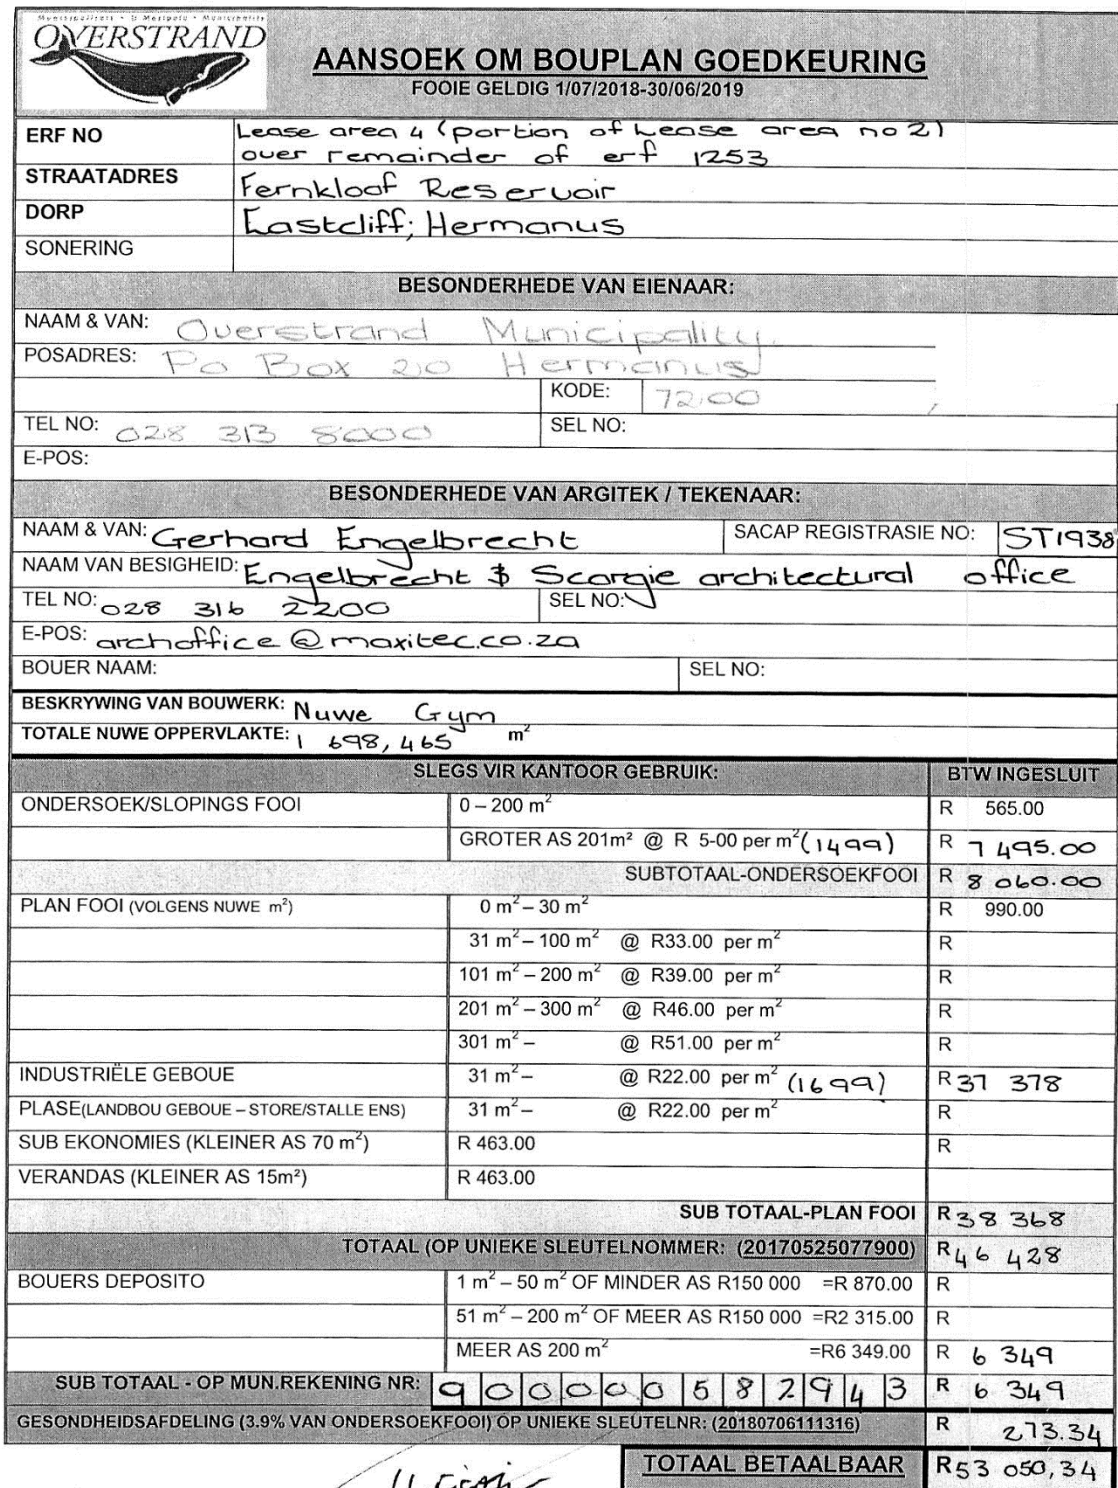 Munisipaliteit • U Masipala • Municipality
OVERSTRAND
AANSOEK OM BOUPLAN GOEDKEURING
FOOIE GELDIG 1/07/2018-30/06/2019
ERF NO Lease area 4 (portion of Lease area no 2)
over remainder of erf 1253
STRAATADRES Fernkloof Reservoir
DORP Eastcliff; Hermanus
SONERING
BESONDERHEDE VAN EIENAAR:
NAAM & VAN: Overstrand Municipality.
POSADRES: Po Box 20 Hermanus
KODE: 7200
TEL NO: 028 313 8000 SEL NO:
E-POS:
BESONDERHEDE VAN ARGITEK / TEKENAAR:
NAAM & VAN: Gerhard Engelbrecht SACAP REGISTRASIE NO: ST1938
NAAM VAN BESIGHEID: Engelbrecht & Scorgie architectural office
TEL NO: 028 316 2200 SEL NO:
E-POS: archoffice@maxitec.co.za
BOUER NAAM: SEL NO:
BESKRYWING VAN BOUWERK: Nuwe Gym
TOTALE NUWE OPPERVLAKTE: 1 698,465 m²
SLEGS VIR KANTOOR GEBRUIK: BTW INGESLUIT
ONDERSOEK/SLOPINGS FOOI 0 – 200 m² R 565.00
GROTER AS 201m² @ R 5-00 per m² (1499) R 7 495.00
SUBTOTAAL-ONDERSOEKFOOI R 8 060.00
PLAN FOOI (VOLGENS NUWE m²) 0 m² – 30 m² R 990.00
31 m² – 100 m² @ R33.00 per m² R
101 m² – 200 m² @ R39.00 per m² R
201 m² – 300 m² @ R46.00 per m² R
301 m² – @ R51.00 per m² R
INDUSTRIËLE GEBOUE 31 m² – @ R22.00 per m² (1699) R 37 378
PLASE(LANDBOU GEBOUE – STORE/STALLE ENS) 31 m² – @ R22.00 per m² R
SUB EKONOMIES (KLEINER AS 70 m²) R 463.00 R
VERANDAS (KLEINER AS 15m²) R 463.00
SUB TOTAAL-PLAN FOOI R 38 368
TOTAAL (OP UNIEKE SLEUTELNOMMER: (20170525077900) R 46 428
BOUERS DEPOSITO 1 m² – 50 m² OF MINDER AS R150 000 =R 870.00 R
51 m² – 200 m² OF MEER AS R150 000 =R2 315.00 R
MEER AS 200 m² =R6 349.00 R 6 349
SUB TOTAAL - OP MUN.REKENING NR: 900000582943 R 6 349
GESONDHEIDSAFDELING (3.9% VAN ONDERSOEKFOOI) OP UNIEKE SLEUTELNR: (20180706111316) R 273.34
TOTAAL BETAALBAAR R53 050,34